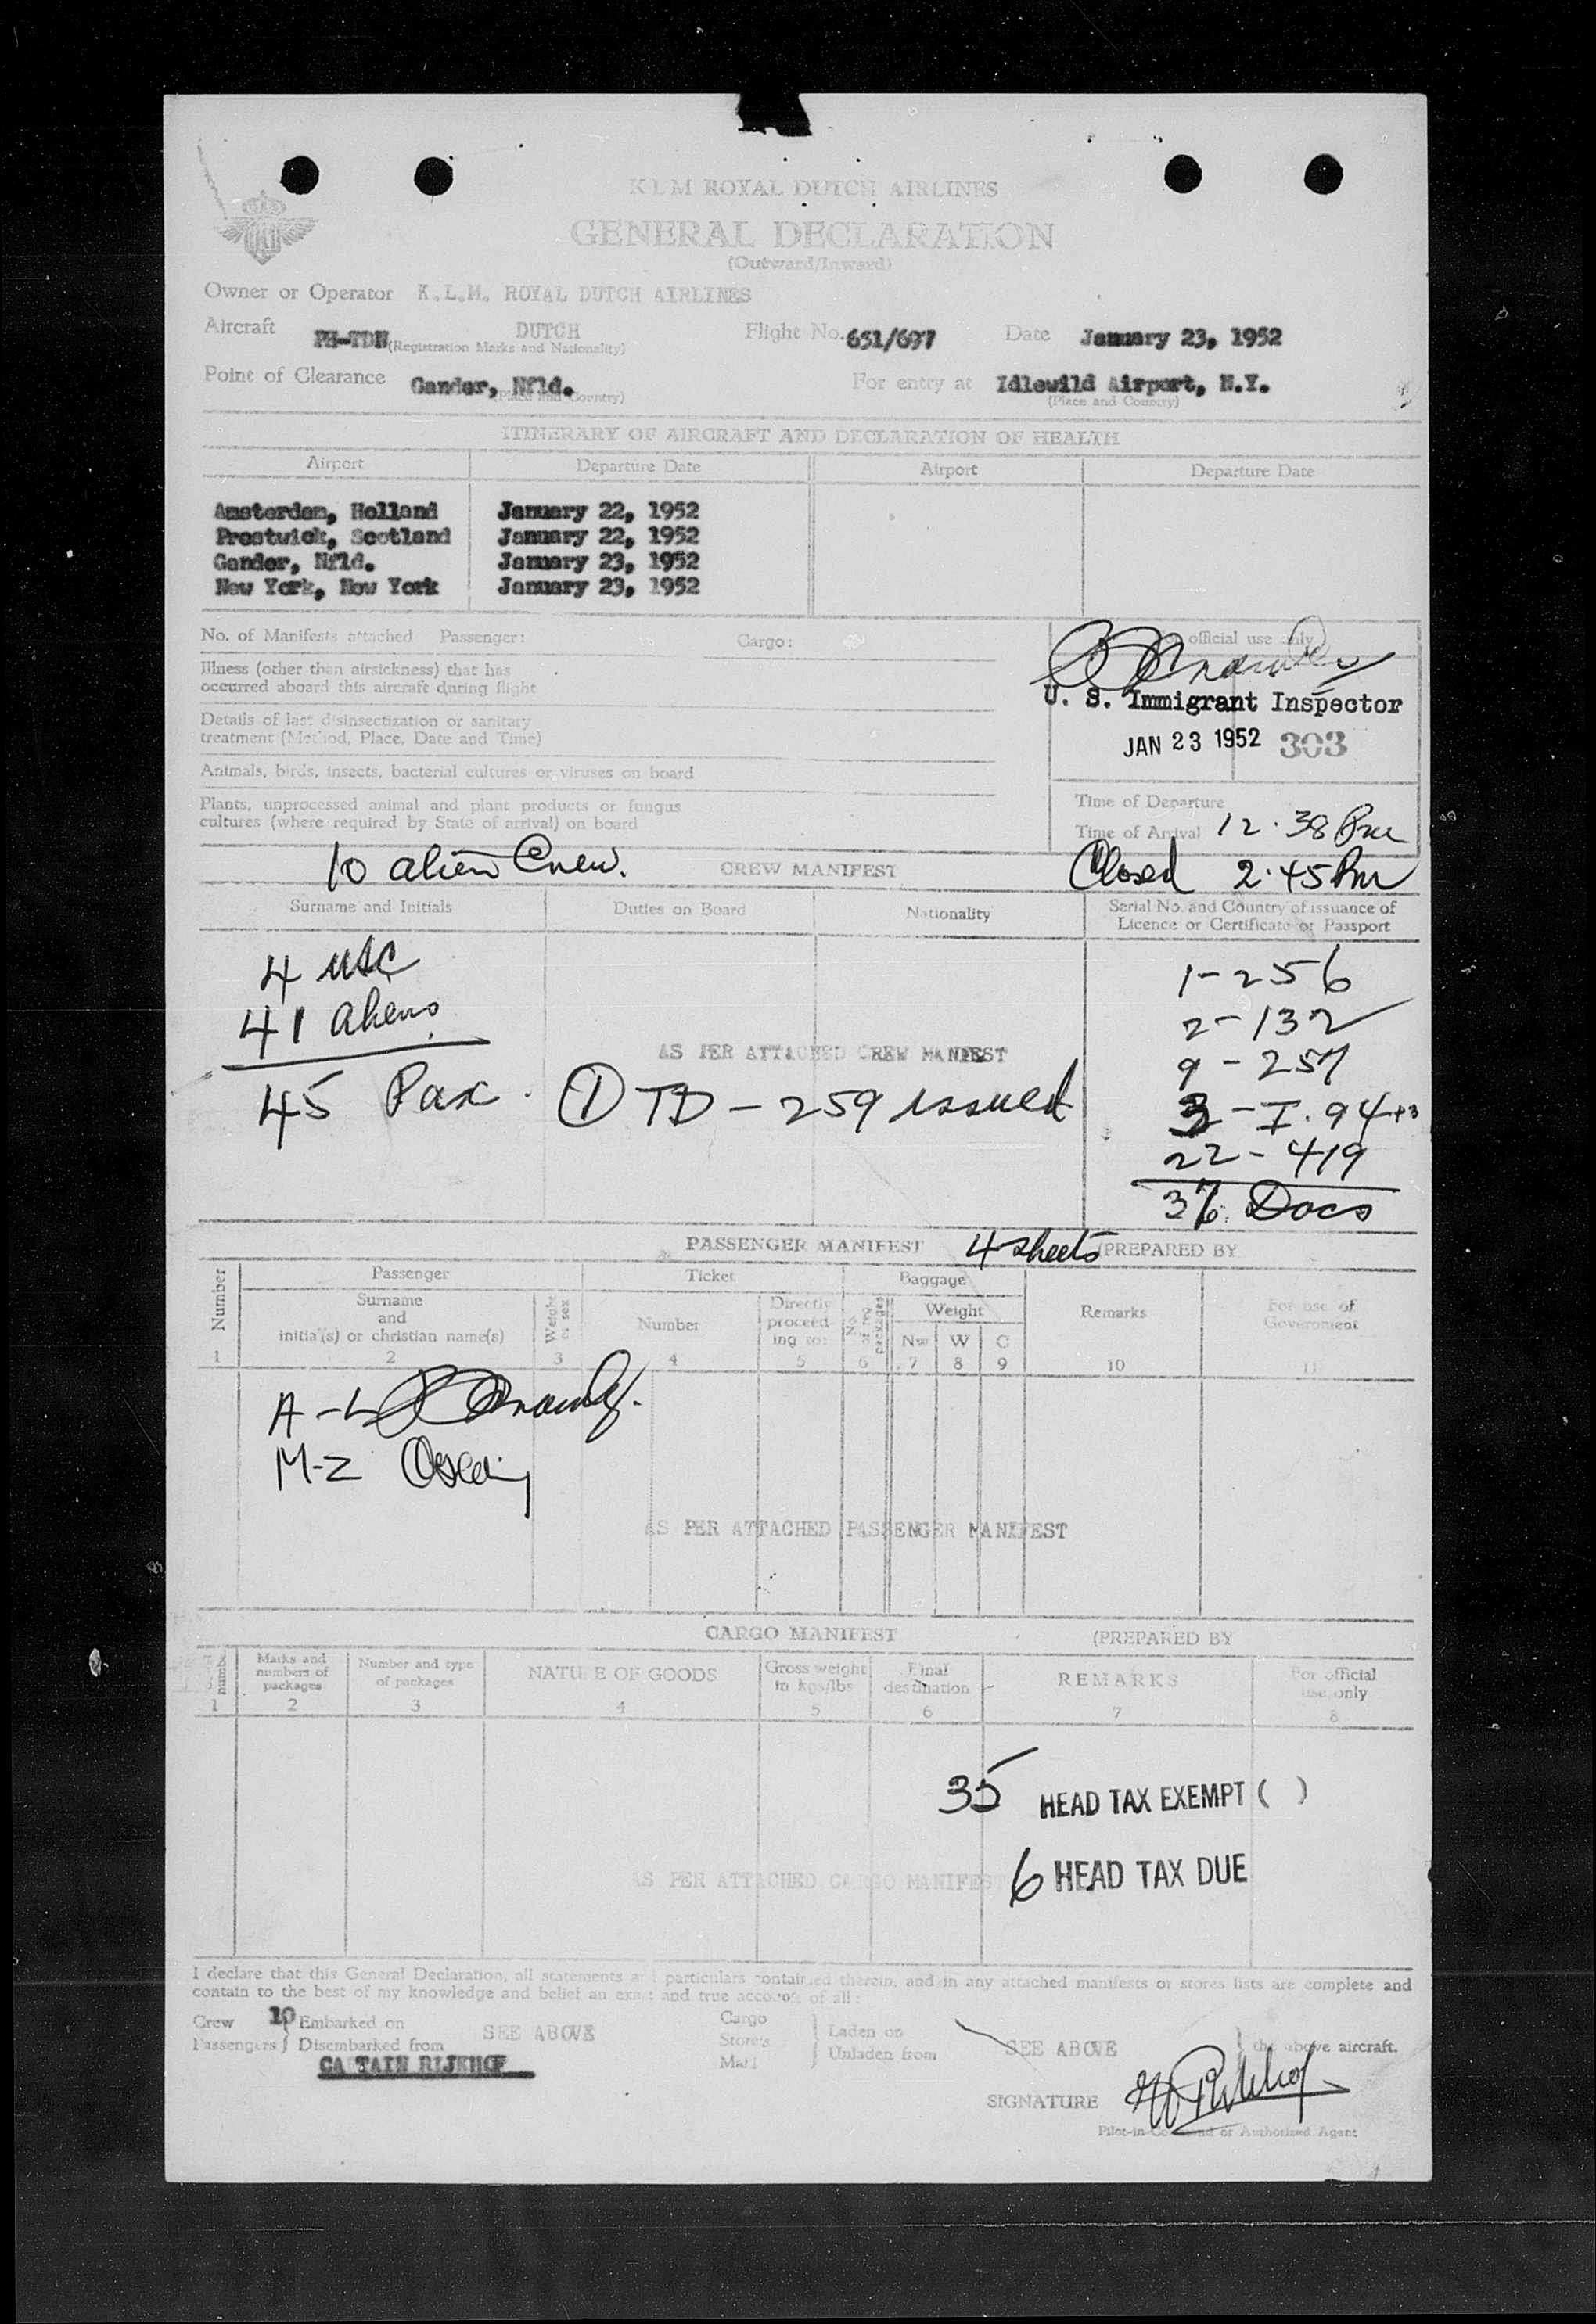 K L M ROYAL DUTCH AIRLINES
GENERAL DECLARATION
(Outward/Inward)
Owner or Operator K.L.M. ROYAL DUTCH AIRLINES
Aircraft PH-TDN DUTCH Flight No. 651/697 Date January 23, 1952
(Registration Marks and Nationality)
Point of Clearance Gander, Nfld. For entry at Idlewild Airport, N.Y.
(Place and Country) (Place and Country)
ITINERARY OF AIRCRAFT AND DECLARATION OF HEALTH
Airport Departure Date Airport Departure Date
Amsterdam, Holland January 22, 1952
Prestwick, Scotland January 22, 1952
Gander, Nfld. January 23, 1952
New York, New York January 23, 1952
No. of Manifests attached Passenger: Cargo:
official use only
Illness (other than airsickness) that has
occurred aboard this aircraft during flight
U. S. Immigrant Inspector
Details of last disinsectization or sanitary
treatment (Method, Place, Date and Time)
JAN 23 1952 303
Animals, birds, insects, bacterial cultures or viruses on board
Plants, unprocessed animal and plant products or fungus
cultures (where required by State of arrival) on board
Time of Departure
Time of Arrival 12.38 Pm
10 alien Crew. CREW MANIFEST Closed 2.45 Pm
Surname and Initials Duties on Board Nationality Serial No. and Country of issuance of
Licence or Certificate or Passport
4 USC 1-256
41 aliens 2-132
AS PER ATTACHED CREW MANIFEST 9-257
45 Pax. ① TD-259 issued 3-I.94+3
22-419
37 Docs
PASSENGER MANIFEST 4 sheets (PREPARED BY
Number Passenger Ticket Baggage
Surname
and
initial(s) or christian name(s) Weight or sex Number Directly
proceed-
ing to: No. of reg packages Weight
Nw W C Remarks For use of
Government
1 2 3 4 5 6 7 8 9 10 11
A-L
M-Z
AS PER ATTACHED PASSENGER MANIFEST
CARGO MANIFEST (PREPARED BY
number Marks and
numbers of
packages Number and type
of packages NATURE OF GOODS Gross weight
in kgs/lbs Final
destination REMARKS For official
use only
1 2 3 4 5 6 7 8
35 HEAD TAX EXEMPT ( )
6 HEAD TAX DUE
AS PER ATTACHED CARGO MANIFEST
I declare that this General Declaration, all statements and particulars contained therein, and in any attached manifests or stores lists are complete and
contain to the best of my knowledge and belief an exact and true account of all:
Crew 10 Embarked on SEE ABOVE Cargo Laden on SEE ABOVE the above aircraft.
Passengers Disembarked from Stores Unladen from
Mail
CAPTAIN RIJKHOF
SIGNATURE
Pilot-in-Command or Authorized Agent